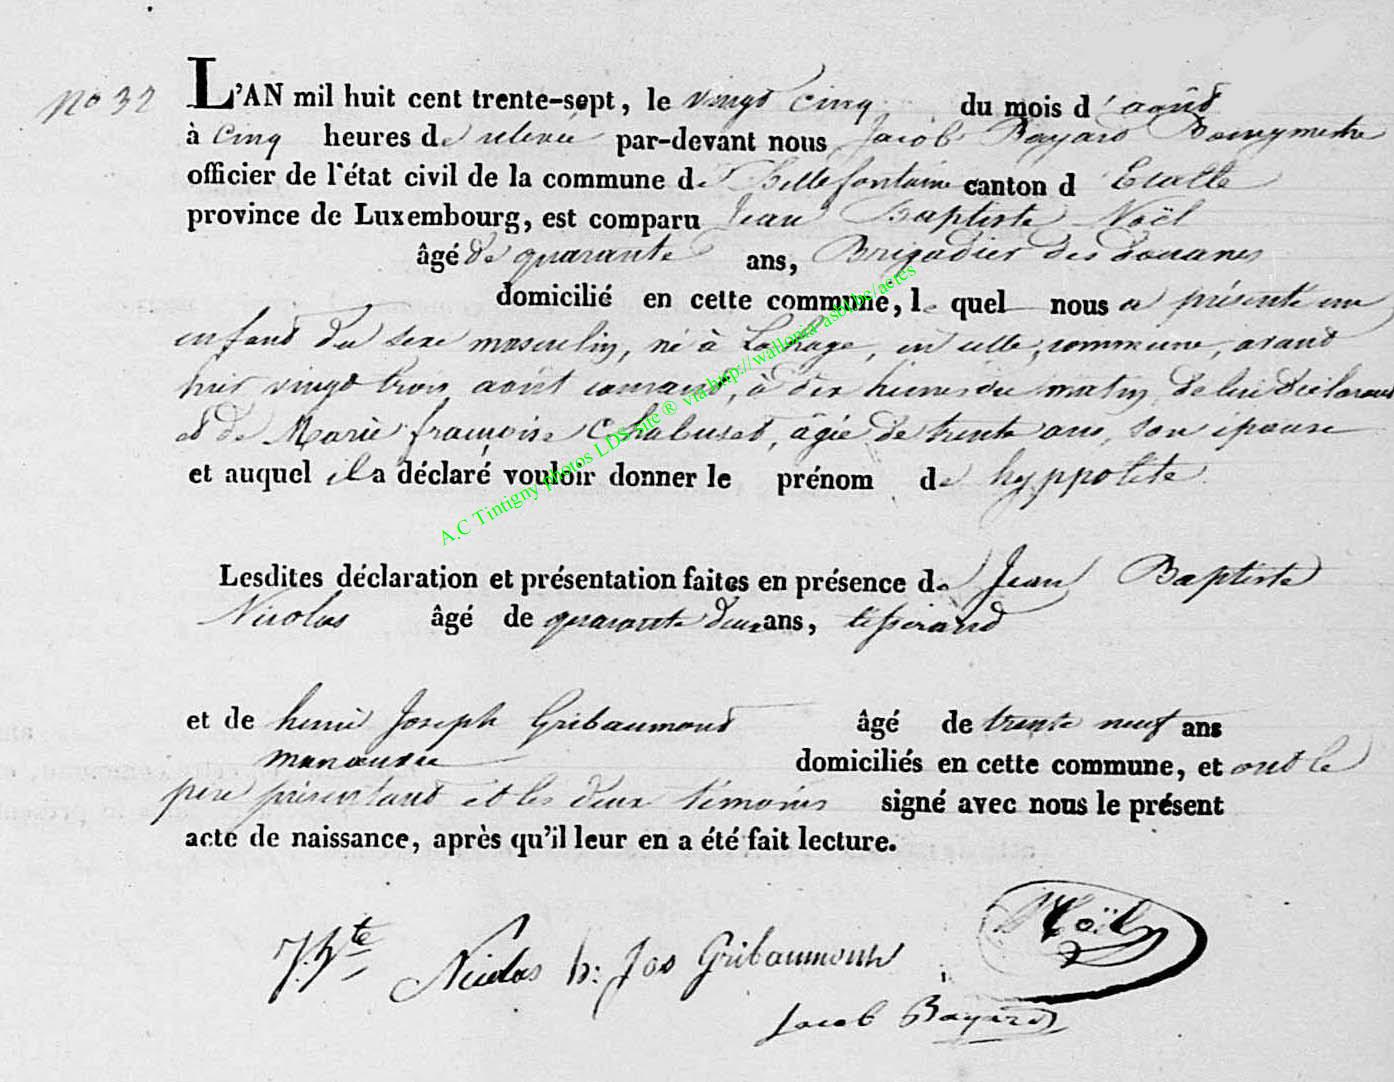 No 32
L'AN mil huit cent trente-sept, le vingt cinq du mois d'août
à cinq heures de relevée par-devant nous Jacob Bayard Bourgmestre
officier de l'état civil de la commune de Bellefontaine canton d'Etalle
province de Luxembourg, est comparu Jean Baptiste Noël
âgé de quarante ans, Brigadier des douanes
domicilié en cette commune, lequel nous a présenté un
enfant du sexe masculin, né à Lahage, en cette commune, avant
hier vingt trois août courant, à dix heures du matin, de lui déclarant
et de Marie françoise Chabuset, âgée de trente ans, son épouse
et auquel il a déclaré vouloir donner le prénom de hyppolite
A.C Tintigny photos LDS site ® via http://wallonia-asbl.be/actes
Lesdites déclaration et présentation faites en présence de Jean Baptiste
Nicolas âgé de quarante deux ans, tisserand
et de henri Joseph Gribaumont âgé de trente neuf ans
manœuvre domiciliés en cette commune, et ont le
père présentant et les deux témoins signé avec nous le présent
acte de naissance, après qu'il leur en a été fait lecture.
J. Bte Nicolas h: Jos Gribaumont Noël
Jacob Bayard